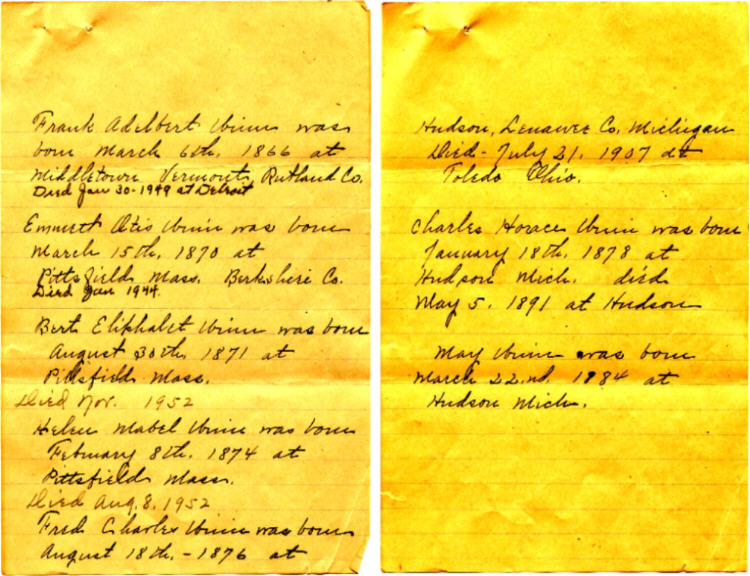 Frank Adelbert Winn was
born March 6th, 1866 at
Middletown Vermont, Rutland Co.
Died Jan 30-1949 at Detroit
Emmett Otis Winn was born
March 15th, 1870 at
Pittsfield, Mass. Berkshire Co.
Died Jan 1944.
Bert Eliphalet Winn was born
August 30th, 1871 at
Pittsfield, Mass.
Died Nov. 1952
Helen Mabel Winn was born
February 8th, 1874 at
Pittsfield Mass.
Died Aug. 8, 1952
Fred Charles Winn was born
August 18th, - 1876 at
Hudson, Lenawee Co, Michigan
Died - July 21, 1907 at
Toledo Ohio.
Charles Horace Winn was born
January 18th, 1878 at
Hudson Mich. died
May 5, 1891 at Hudson
May Winn was born
March 22.nd, 1884 at
Hudson Mich.